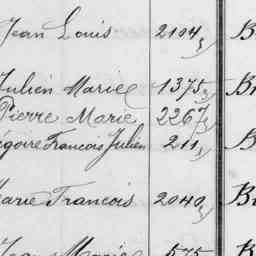 Jean Louis 2104
Julien Marie 1375
Pierre Marie 2267
Francois Julien 211
Marie Francois 2040
Jean Marie 575